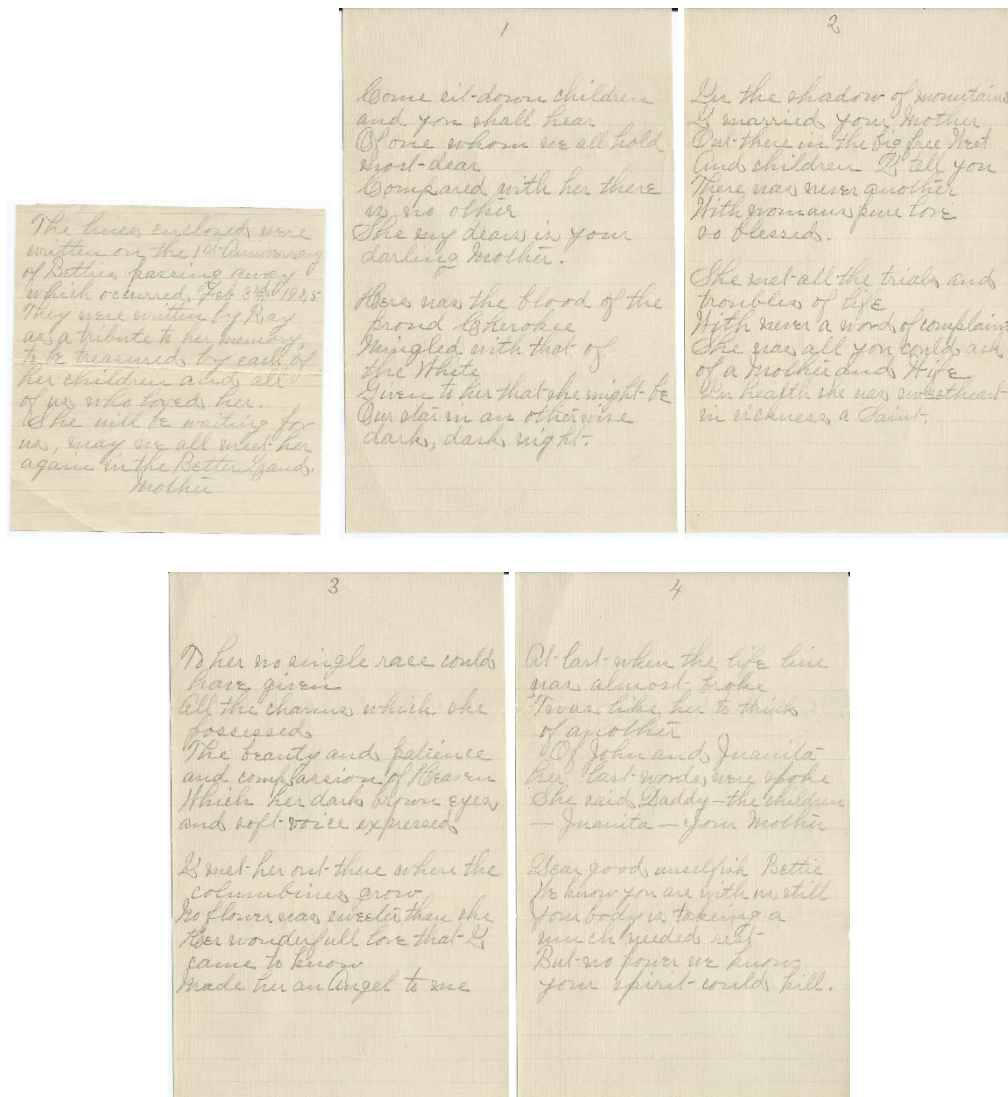 The lines enclosed were
written on the 1st Anniversary
of Betties passing away
which occurred Feb 3rd 1925
They were written by Ray
as a tribute to her memory,
to be treasured by each of
her children and all
of us who loved her.
She will be waiting for
us, may we all meet her
again in the Better Land.
Mother
1
Come sit down children
and you shall hear
Of one whom we all hold
most dear
Compared with her there
is no other
She my dears is your
darling Mother.
Hers was the blood of the
proud Cherokee
Mingled with that of
the White
Given to her that she might be
Our star in an otherwise
dark, dark night.
2
In the shadow of mountains
I married your Mother
Out there in the big free West
And children I tell you
There was never another
With womans pure love
so blessed.
She met all the trials and
troubles of life
With never a word of complaint
She was all you could ask
of a Mother and Wife
In health she was sweetheart
in sickness a Saint.
3
To her no single race could
have given
All the charms which she
possessed
The beauty and patience
and compassion of Heaven
Which her dark brown eyes
and soft voice expressed
I met her out there where the
columbines grow
No flower was sweeter than she
Her wonderfull love that I
came to know
Made her an Angel to me
4
At last when the life line
was almost broke
'Twas like her to think
of another
Of John and Juanita
her last words were spoke
She said Daddy - the children
- Juanita - your Mother
Dear good unselfish Bettie
We know you are with us still
Your body is taking a
much needed rest
But no power we know
your spirit could kill.